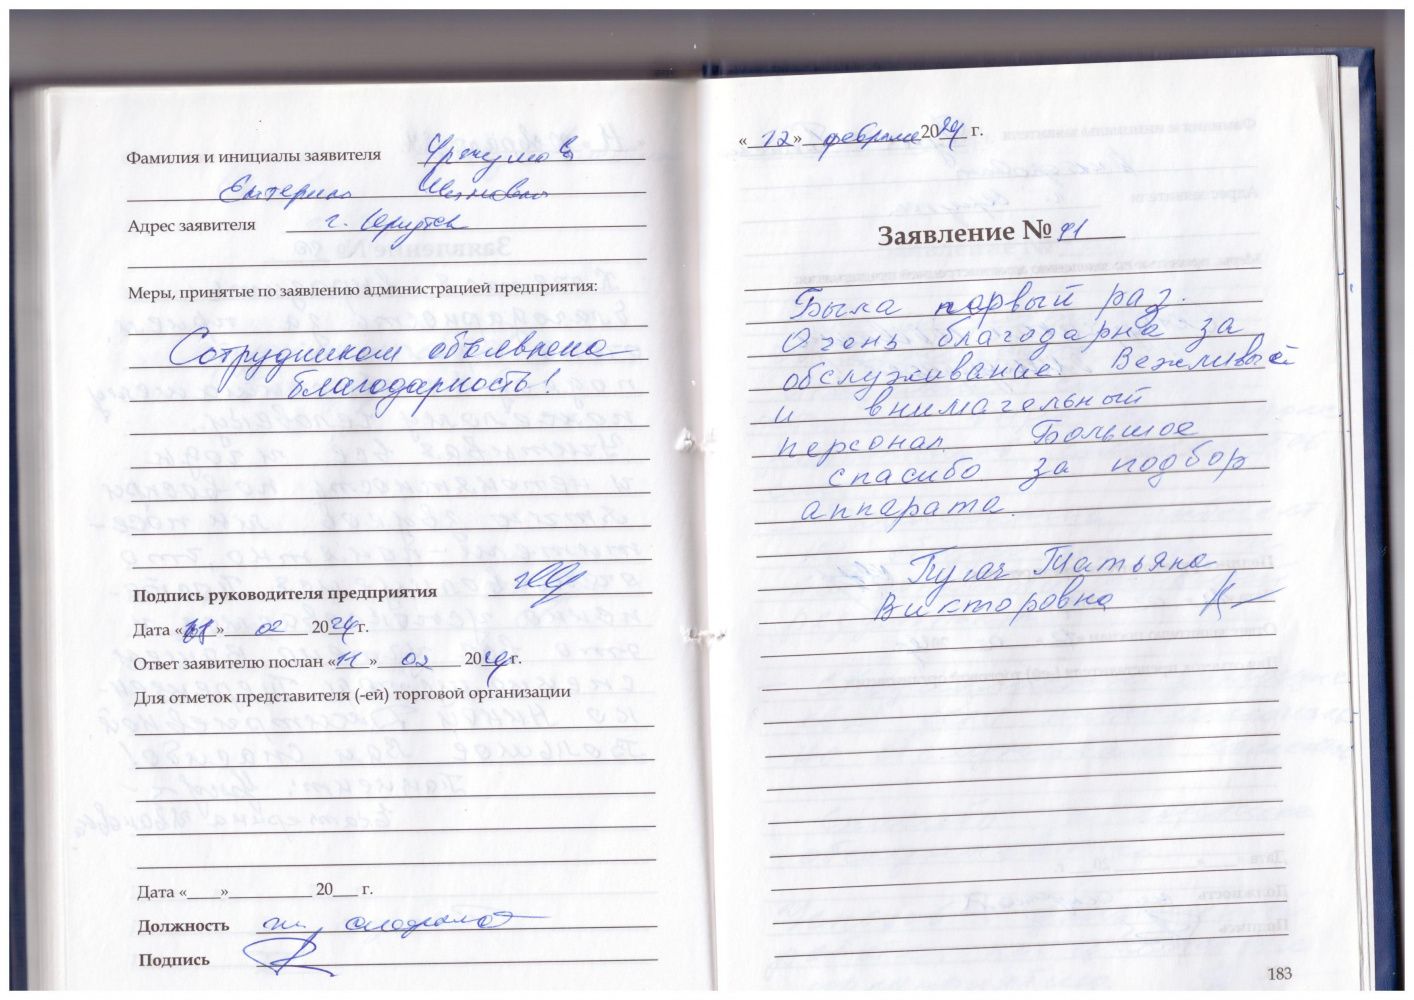 Фамилия и инициалы заявителя
Екатерина Ивановна
Адрес заявителя г. Иркутск
Меры, принятые по заявлению администрацией предприятия:
Сотрудникам объявлена
благодарность!
Подпись руководителя предприятия
Дата « » 02 2024 г.
Ответ заявителю послан «11» 02 2024 г.
Для отметок представителя (-ей) торговой организации
Дата «___»__________ 20___ г.
Должность
Подпись
«12» февраля 2024 г.
Заявление № 91
Была первый раз.
Очень благодарна за
обслуживание. Вежливый
и внимательный
персонал. Большое
спасибо за подбор
аппарата.
Пугач Татьяна
Викторовна
183